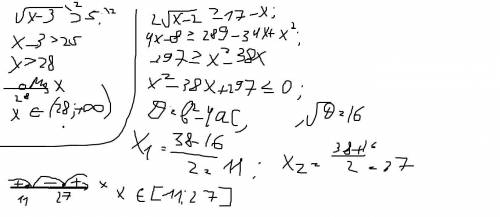 √x-3 \² > 5 \²
x-3 > 25
x > 28
28 x
x ∈ (28;+∞)
2√x-2 ≥ 17-x;
4x-8 ≥ 289-34x+x²;
-297 ≥ x²-38x
x²-38x+297 ≤ 0;
D=b²-4ac, √D=16
x₁ = 38-16 / 2 = 11; x₂ = 38+16 / 2 = 27
+ - + x
11 27
x ∈ [11;27]